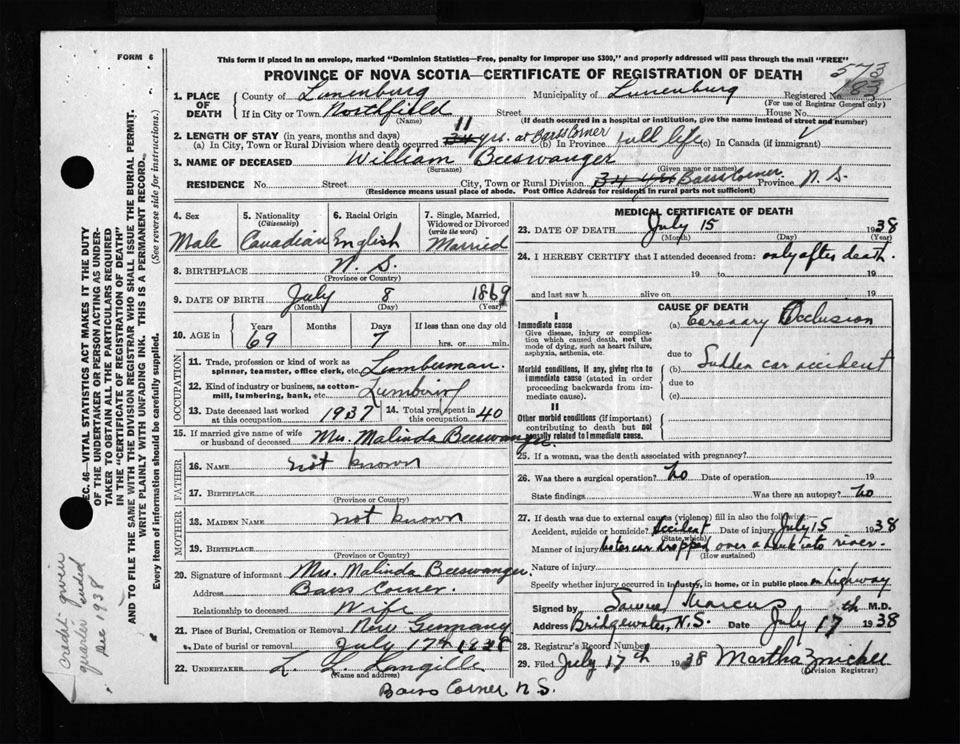 FORM 6
This form if placed in an envelope, marked "Dominion Statistics—Free, penalty for improper use $300," and properly addressed will pass through the mail "FREE"
PROVINCE OF NOVA SCOTIA—CERTIFICATE OF REGISTRATION OF DEATH
573
83
1. PLACE OF DEATH
County of Lunenburg Municipality of Lunenburg Registered No.
(For use of Registrar General only)
If in City or Town Northfield Street House No.
(Name) (If death occurred in a hospital or institution, give the name instead of street and number)
2. LENGTH OF STAY (in years, months and days)
11
(a) In City, Town or Rural Division where death occurred 34 yrs. at Barss Corner (b) In Province full life (c) In Canada (if immigrant)
3. NAME OF DECEASED William Beeswanger
(Surname) (Given name or names)
RESIDENCE No. Street City, Town or Rural Division 34 yrs Barss Corner. Province N. S.
(Residence means usual place of abode. Post Office Address for residents in rural parts not sufficient)
4. Sex
Male
5. Nationality
(Citizenship)
Canadian
6. Racial Origin
English
7. Single, Married, Widowed or Divorced
(write the word)
Married
8. BIRTHPLACE N. S.
(Province or Country)
9. DATE OF BIRTH July 8 1869
(Month) (Day) (Year)
10. AGE in
Years Months Days If less than one day old
69 7 hrs. or min.
OCCUPATION
11. Trade, profession or kind of work as spinner, teamster, office clerk, etc. Lumberman.
12. Kind of industry or business, as cotton-mill, lumbering, bank, etc. Lumbering
13. Date deceased last worked at this occupation 1937 14. Total yrs. spent in this occupation 40
15. If married give name of wife or husband of deceased Mrs. Malinda Beeswanger.
FATHER
16. NAME not known
17. BIRTHPLACE
(Province or Country)
MOTHER
18. MAIDEN NAME not known
19. BIRTHPLACE
(Province or Country)
20. Signature of informant Mrs. Malinda Beeswanger.
Address Barss Corner.
Relationship to deceased Wife
21. Place of Burial, Cremation or Removal New Germany
Date of burial or removal July 17th 1938
22. UNDERTAKER L. L. Langille
(Name and address)
Barss Corner N.S.
MEDICAL CERTIFICATE OF DEATH
23. DATE OF DEATH July 15 1938
(Month) (Day) (Year)
24. I HEREBY CERTIFY that I attended deceased from: only after death.
19 to 19
and last saw h alive on 19
CAUSE OF DEATH
I
Immediate cause
Give disease, injury or complication which caused death, not the mode of dying, such as heart failure, asphyxia, asthenia, etc.
(a) Coronary Occlusion
due to
Morbid conditions, if any, giving rise to immediate cause (stated in order proceeding backwards from immediate cause).
(b) Sudden car accident
due to
(c)
II
Other morbid conditions (if important) contributing to death but not causally related to immediate cause.
25. If a woman, was the death associated with pregnancy?
26. Was there a surgical operation? No Date of operation 19
State findings Was there an autopsy? No
27. If death was due to external causes (violence) fill in also the following:—
Accident, suicide or homicide? Accident Date of injury July 15 1938
(State which)
Manner of injury Motor car dropped over a bank into river.
(How sustained)
Nature of injury
Specify whether injury occurred in industry, in home, or in public place on highway
Signed by Marcus M.D.
Address Bridgewater, N.S. Date July 17th 1938
28. Registrar's Record Number
29. Filed July 17th 1938 Martha
(Division Registrar)
SEC. 46—VITAL STATISTICS ACT MAKES IT THE DUTY OF THE UNDERTAKER OR PERSON ACTING AS UNDERTAKER TO OBTAIN ALL THE PARTICULARS REQUIRED IN THE "CERTIFICATE OF REGISTRATION OF DEATH" AND TO FILE THE SAME WITH THE DIVISION REGISTRAR WHO SHALL ISSUE THE BURIAL PERMIT.
WRITE PLAINLY WITH UNFADING INK. THIS IS A PERMANENT RECORD.
Every item of information should be carefully supplied. (See reverse side for instructions.)
credit given
quarter ended
Dec 1938